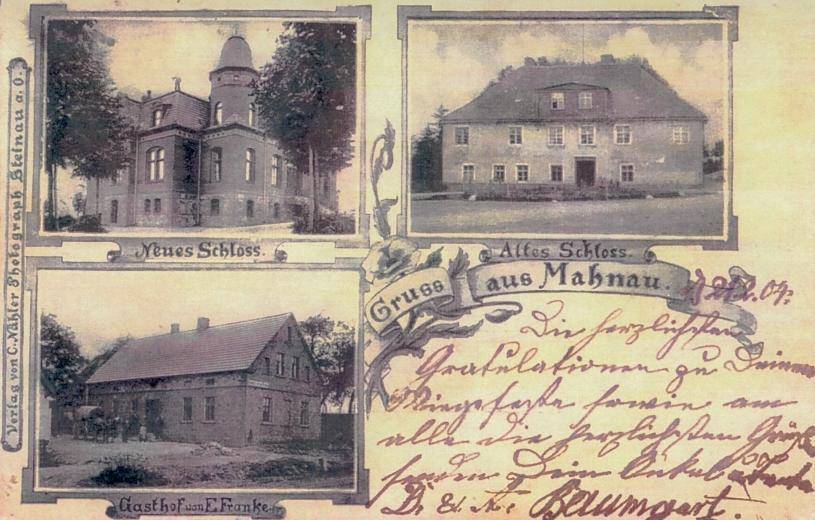 Verlag von C. Nähler Photograph Steinau a. O.
Neues Schloss.
Altes Schloss.
Gruss aus Mahnau.
Gasthof von E. Franke.
Die herzlichsten
Gratulationen zu Deinem
Wiegefeste sowie am
alle die herzlichsten Grüße
senden Dein Onkel u. Tante
Baumgart.